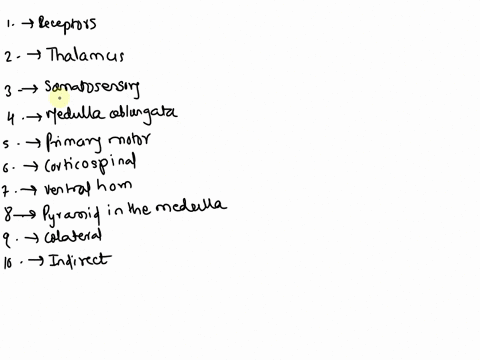 1. → Receptors
2. → Thalamus
3 → Somatosensory
4 → Medulla oblungata
5 → Primary motor
6 → Corticospinal
7. → ventral horn
8 → Pyramid in the medulla
9. → Colateral
10. → Indirect